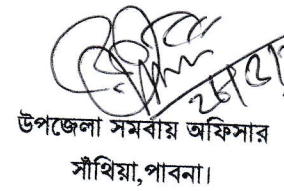 উপজেলা সমবায় অফিসার
সাঁথিয়া,পাবনা।